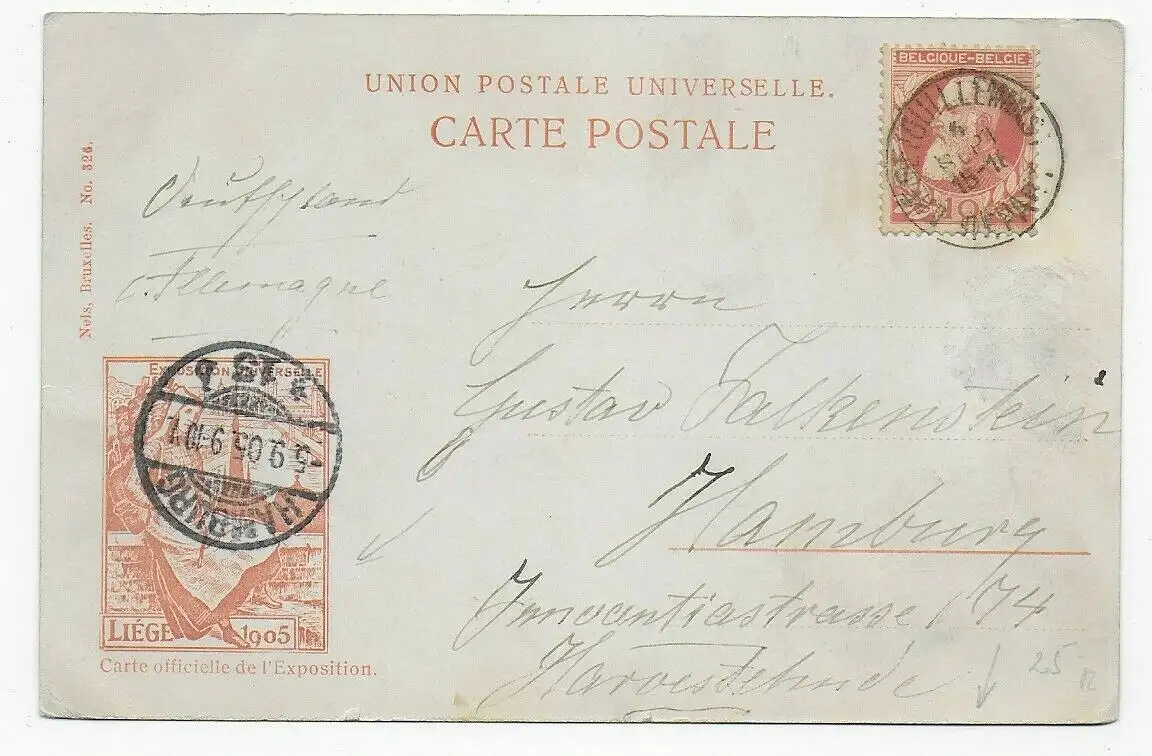 UNION POSTALE UNIVERSELLE.
CARTE POSTALE
BELGIQUE-BELGIE
(GUILLEMINS)
DÉPART
10
Nels, Bruxelles. No. 326.
Deutschland
Allemagne
Herrn
Gustav Falkenstein
Hamburg
Innocentiastrasse 74
Harvestehude
25
EXPOSITION UNIVERSELLE
HAMBURG
5.9.05.9-10V
* 13 b
LIÉGE 1905
Carte officielle de l'Exposition.